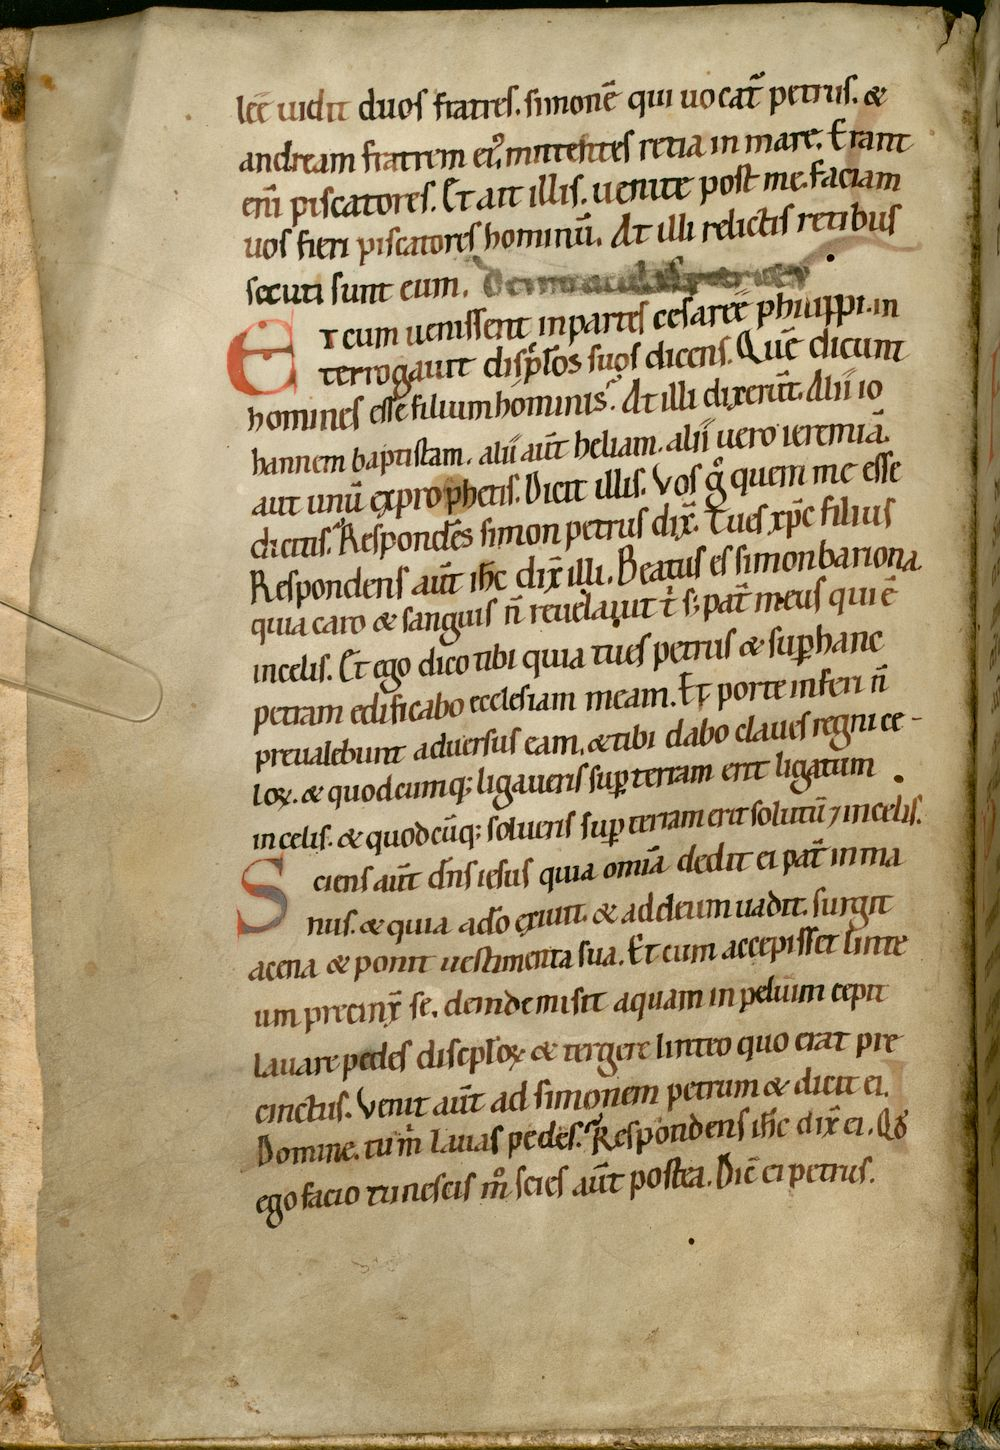 leē uidit duos fratres. simonē qui uocat̄ petrus. &
andream fratrem eiꝰ, mittentes retia in mare. Erant
eni̅ piscatores. Et ait illis. uenite post me. faciam
uos fieri piscatores hominū. At illi relictis retibus
secuti sunt eum.
Et cum uenissent in partes cesareē philippi. in
terrogauit discip̄los suos dicens. Quē dicunt
homines esse filium hominis? At illi dixerūt. Alii io
hannem baptistam. alii aūt heliam. alii uero ieremiā.
aut unū ex prophetis. Dicit illis. Vos g̊ quem me esse
dicitis? Respondēs simon petrus dix̄. Tu es xp̄c filius
Respondens aūt ih̄c dix̄ illi. Beatus es simon bariona.
quia caro & sanguis n̄ reuelauit t̍ s; pat̄ meus qui ē
in celis. Et ego dico tibi quia tu es petrus & sup̄ hanc
petram edificabo ecclesiam meam. Et porte inferi n̄
preualebunt aduersus eam, & tibi dabo claues regni ce-
loꝝ. & quodcumq; ligaueris sup̄ terram erit ligatum
in celis. & quodcūq; solueris sup̄ terram erit solutū ⁊ in celis.
Sciens aūt dn̄s iesus quia omīa dedit ei pat̄ in ma
nus. & quia a do̅ exiuit. & ad deum uadit. surgit
a cena & ponit uestimenta sua. Et cum accepisset linte
um precinx̄ se. deinde misit aquam in peluim cepit
lauare pedes discip̄loꝝ & tergere linteo quo erat pre
cinctus. Venit aūt ad simonem petrum & dicit ei.
Domine. tu m̍ lauas pedes? Respondens ih̄c dix̄ ei. Qđ
ego facio tu nescis m̊ scies aūt postea. Dic̄ ei petrus.